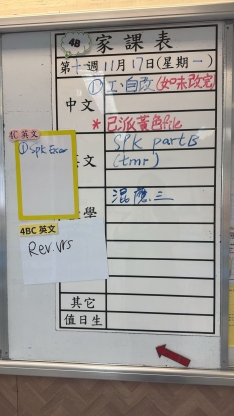 4B 家課表
第十一週 11月17日(星期一)
中文
① 工、自改(如未改完)
* 已派黃色File
4C 英文
① Spk Exer
英文
Spk part B
(tmr)
數學
混應.三
4BC 英文
Rev. vrs
其它
值日生